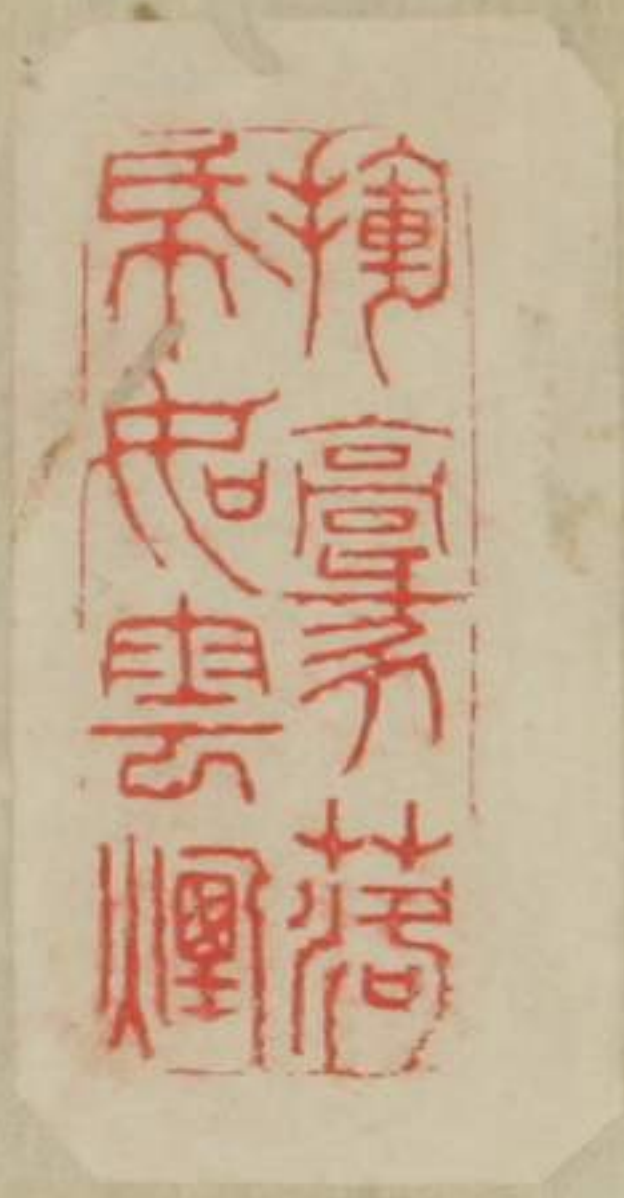 揮毫落
紙如雲煙